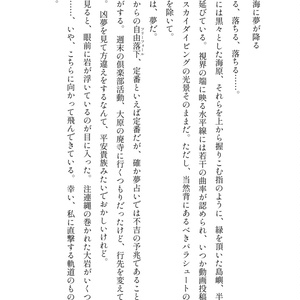 海に夢が降る
る、落ちる、落ちる……。
には黒々とした海原、それらを上から握りこむ指のように、緑を頂いた島嶼、半
延びている。視界の端に映る水平線には若干の曲率が認められ、いつか動画投稿
スカイダイビングの光景そのままだ。ただし、当然背にあるべきパラシュートの
を除いて。
は、夢だ。
からの自由落下、定番といえば定番だが、確か夢占いでは不吉の予兆であること
がする。週末の倶楽部活動、大原の廃寺に行くつもりだったけど、行先を変えて
。凶夢を見て方違えをするなんて、平安貴族みたいでおかしいけれど。
見ると、眼前に岩が浮いているのが目に入った。注連縄の巻かれた大岩がいくつ
……、いや、こちらに向かって飛んできている。幸い、私に直撃する軌道のもの